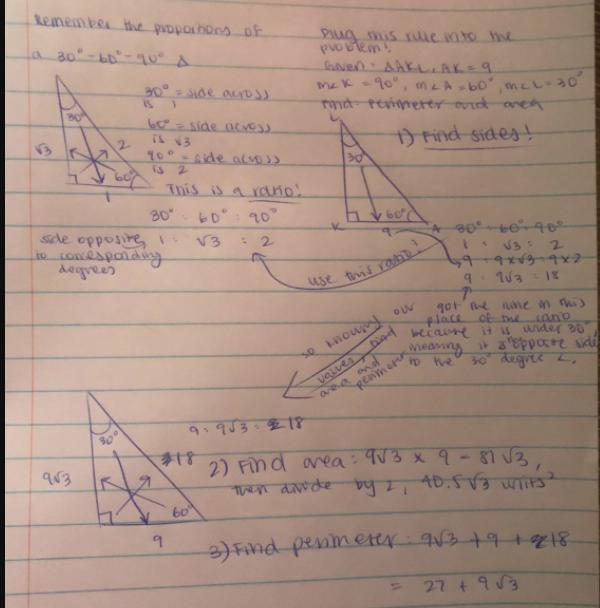 Remember the proportions of
a 30° - 60° - 90° Δ
30° = side across
is 1
60° = side across
is √3
90° = side across
is 2
30°
√3
2
60°
1
This is a ratio!
30° : 60° : 90°
side opposite 1 : √3 : 2
to corresponding
degrees
Plug this rule into the
problem!
Given: ΔAKL, AK = 9
m∠K = 90°, m∠A = 60°, m∠L = 30°
Find: Perimeter and area
1) Find sides!
L
30°
60°
K
9
A
30° : 60° : 90°
1 : √3 : 2
9 : 9×√3 : 9×2
9 : 9√3 : 18
use this ratio!
got the nine in this
place of the ratio
because it is under 30°
meaning it is opposite side
to the 30° degree ∠.
so knowing our
values, find
area and
perimeter
9 : 9√3 : 18
30°
9√3
18
60°
9
2) Find area: 9√3 × 9 = 81√3,
then divide by 2, 40.5√3 units²
3) Find perimeter: 9√3 + 9 + 18
= 27 + 9√3